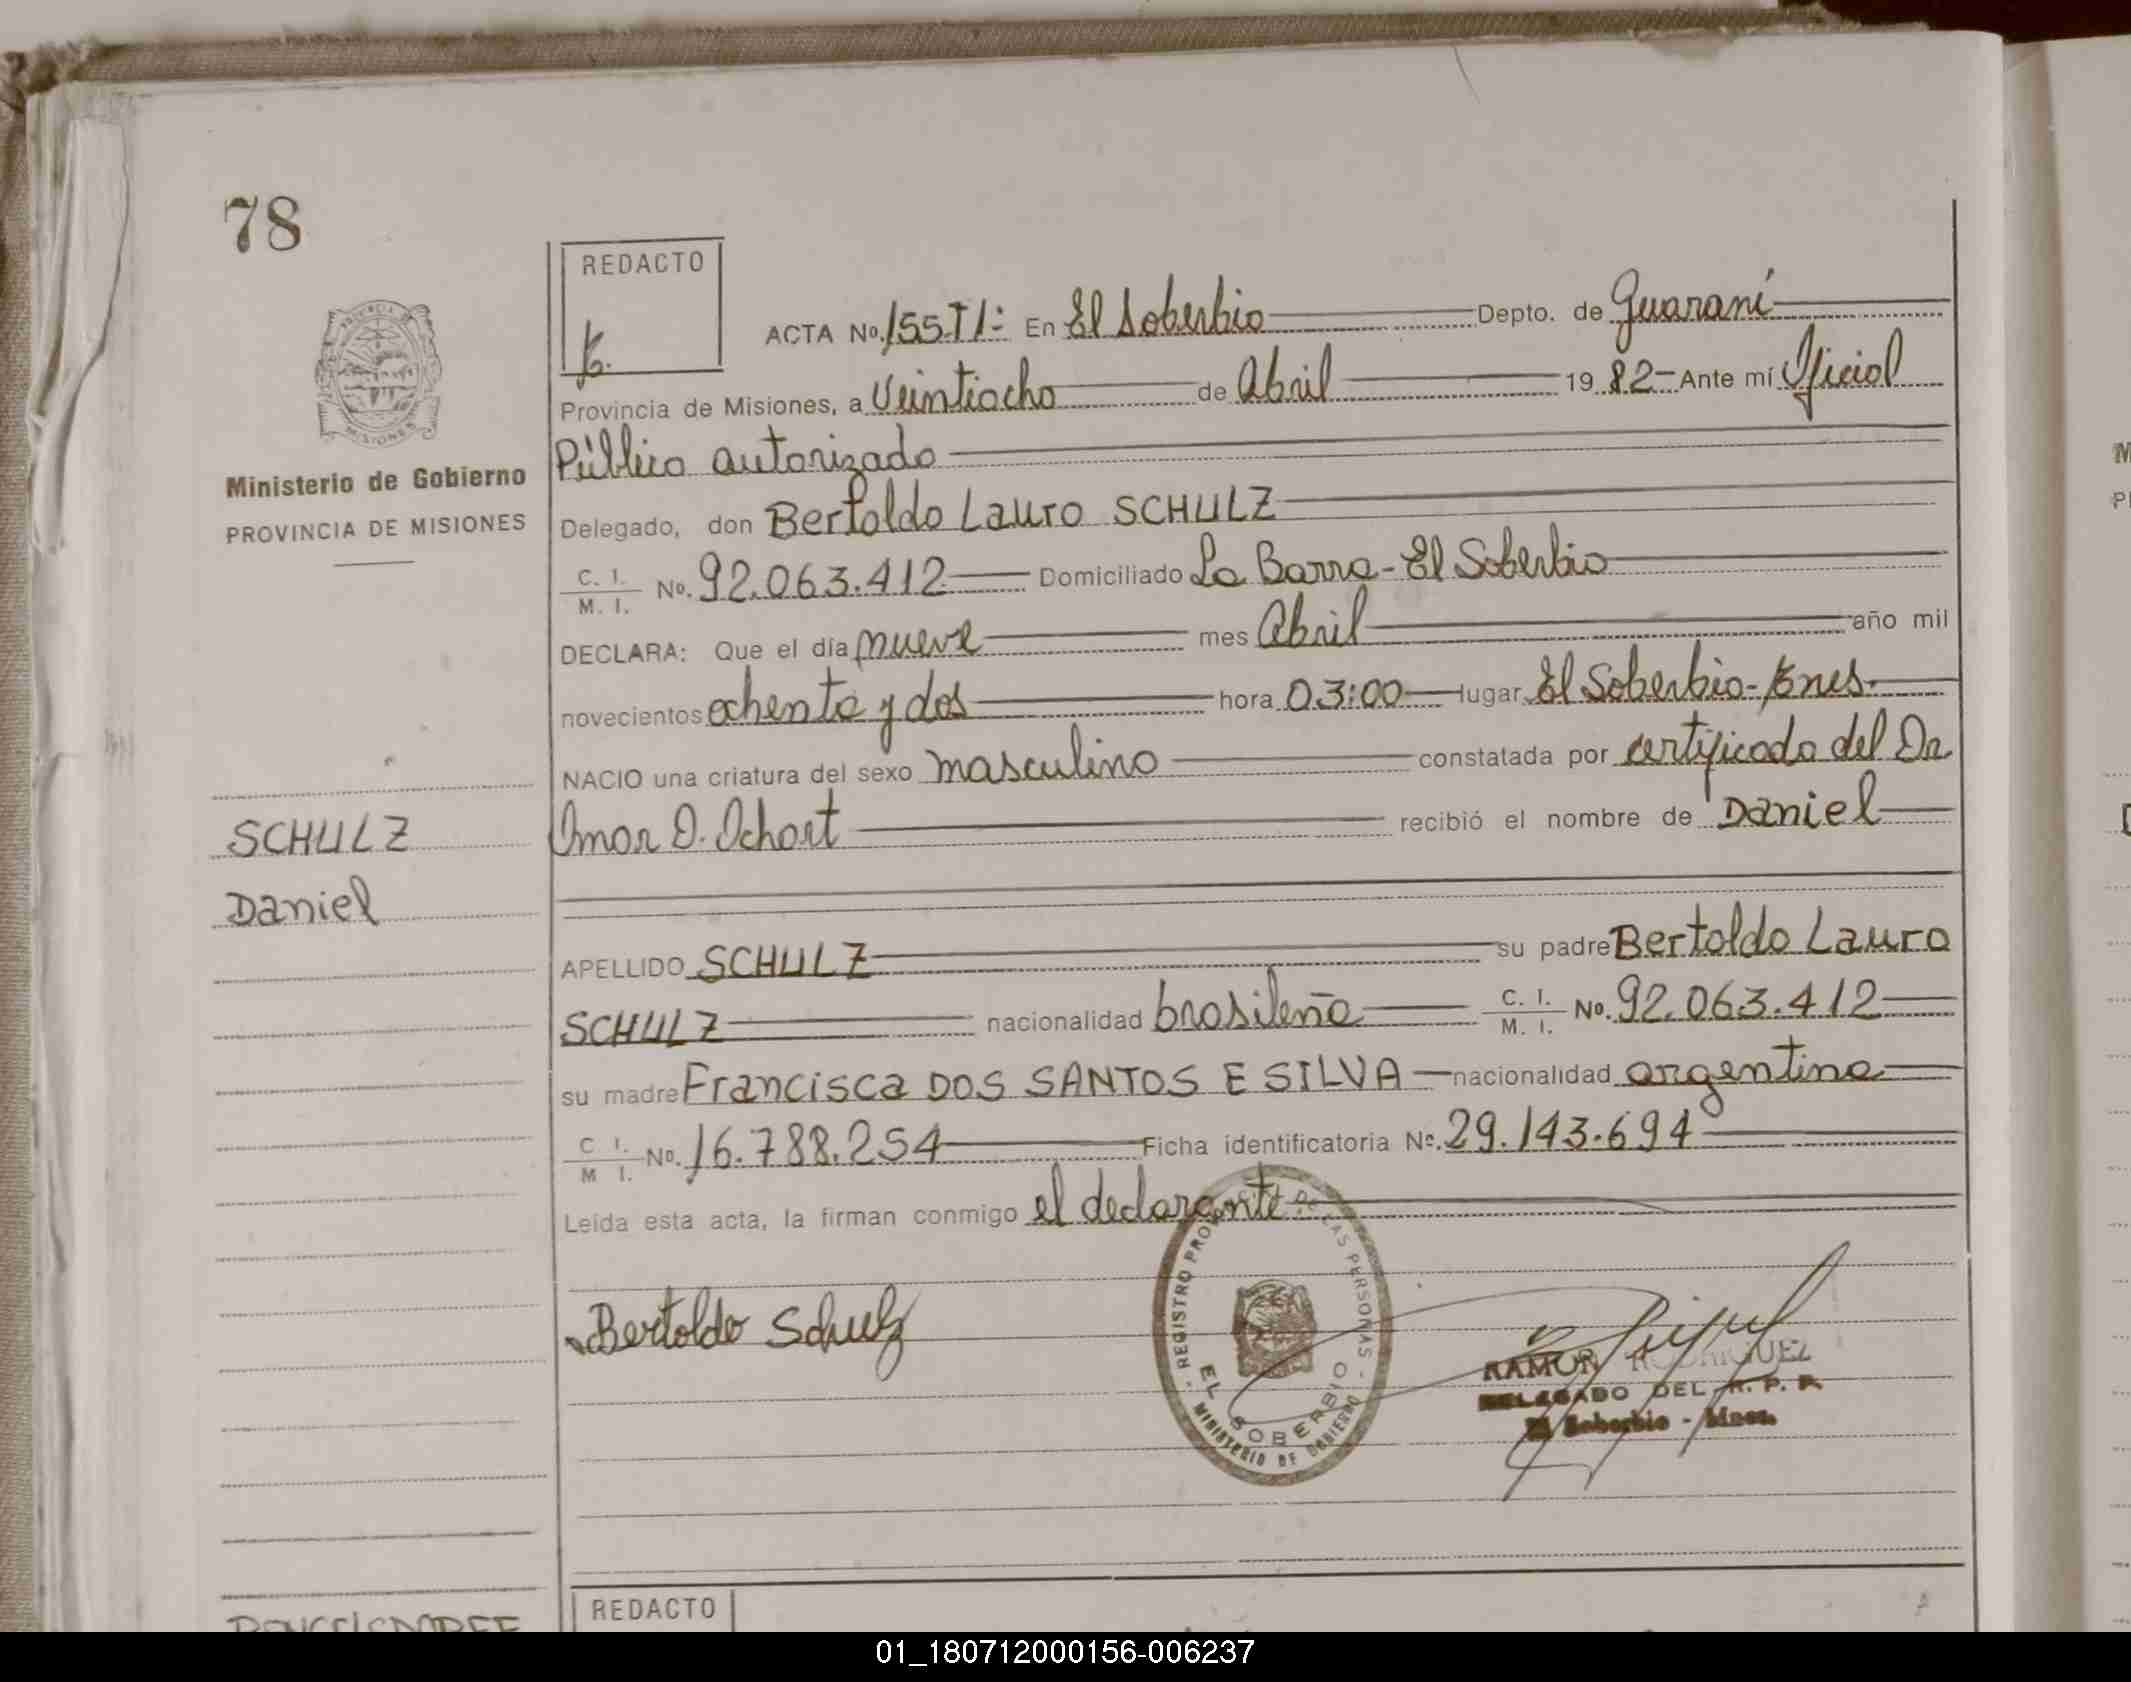 78
REDACTO
ACTA No. 155-T1:- En El Soberbio Depto. de Guaraní
Provincia de Misiones, a Veintiocho de Abril 19 82 Ante mí Oficial
Público autorizado
Ministerio de Gobierno
PROVINCIA DE MISIONES
Delegado, don Bertoldo Lauro SCHULZ
C. I.
M. I. No. 92.063.412 Domiciliado La Barra - El Soberbio
DECLARA: Que el día nueve mes Abril año mil
novecientos ochenta y dos hora 03:00 lugar El Soberbio - Mnes.
NACIO una criatura del sexo masculino constatada por certificado del Dr.
Omar O. Ochort recibió el nombre de Daniel
SCHULZ
Daniel
APELLIDO SCHULZ su padre Bertoldo Lauro
SCHULZ nacionalidad brasileña C. I. M. I. No. 92.063.412
su madre Francisca DOS SANTOS E SILVA nacionalidad argentina
C I. M I. No. 16.788.254 Ficha identificatoria No. 29.143.694
Leída esta acta, la firman conmigo el declarante.
Bertoldo Schulz
REGISTRO PROVINCIAL DE LAS PERSONAS
EL SOBERBIO
MINISTERIO DE GOBIERNO
RAMON RODRIGUEZ
DELEGADO DEL R. P. P.
El Soberbio - Mnes.
REDACTO
01_180712000156-006237